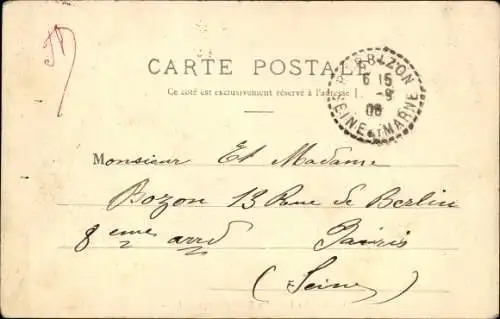 CARTE POSTALE
Ce côté est exclusivement réservé à l'adresse
BARBIZON
6 15
-9
06
SEINE ET MARNE
Monsieur Et Madame
Bozon 13 Rue de Berlin
8eme arrd Paris
(Seine)